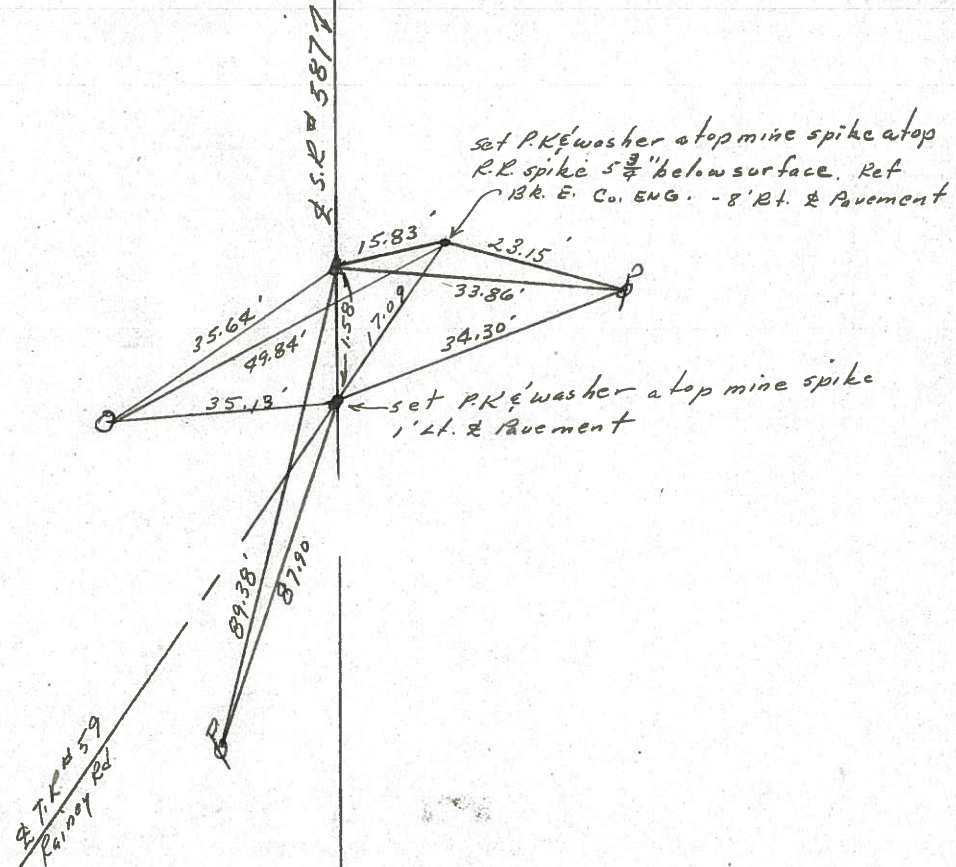 ℄ S.R # 587
set P.K & washer atop mine spike atop
R.R. spike 5 3/4" below surface. Ref
BK. E. Co. ENG. - 8' Rt. ℄ Pavement
15.83'
23.15'
33.86'
35.64'
49.84'
1.58
17.09
34.30'
35.13'
set P.K & washer atop mine spike
1' Lt. ℄ Pavement
89.38'
87.90
℄ T.R # 59
Rainey Rd